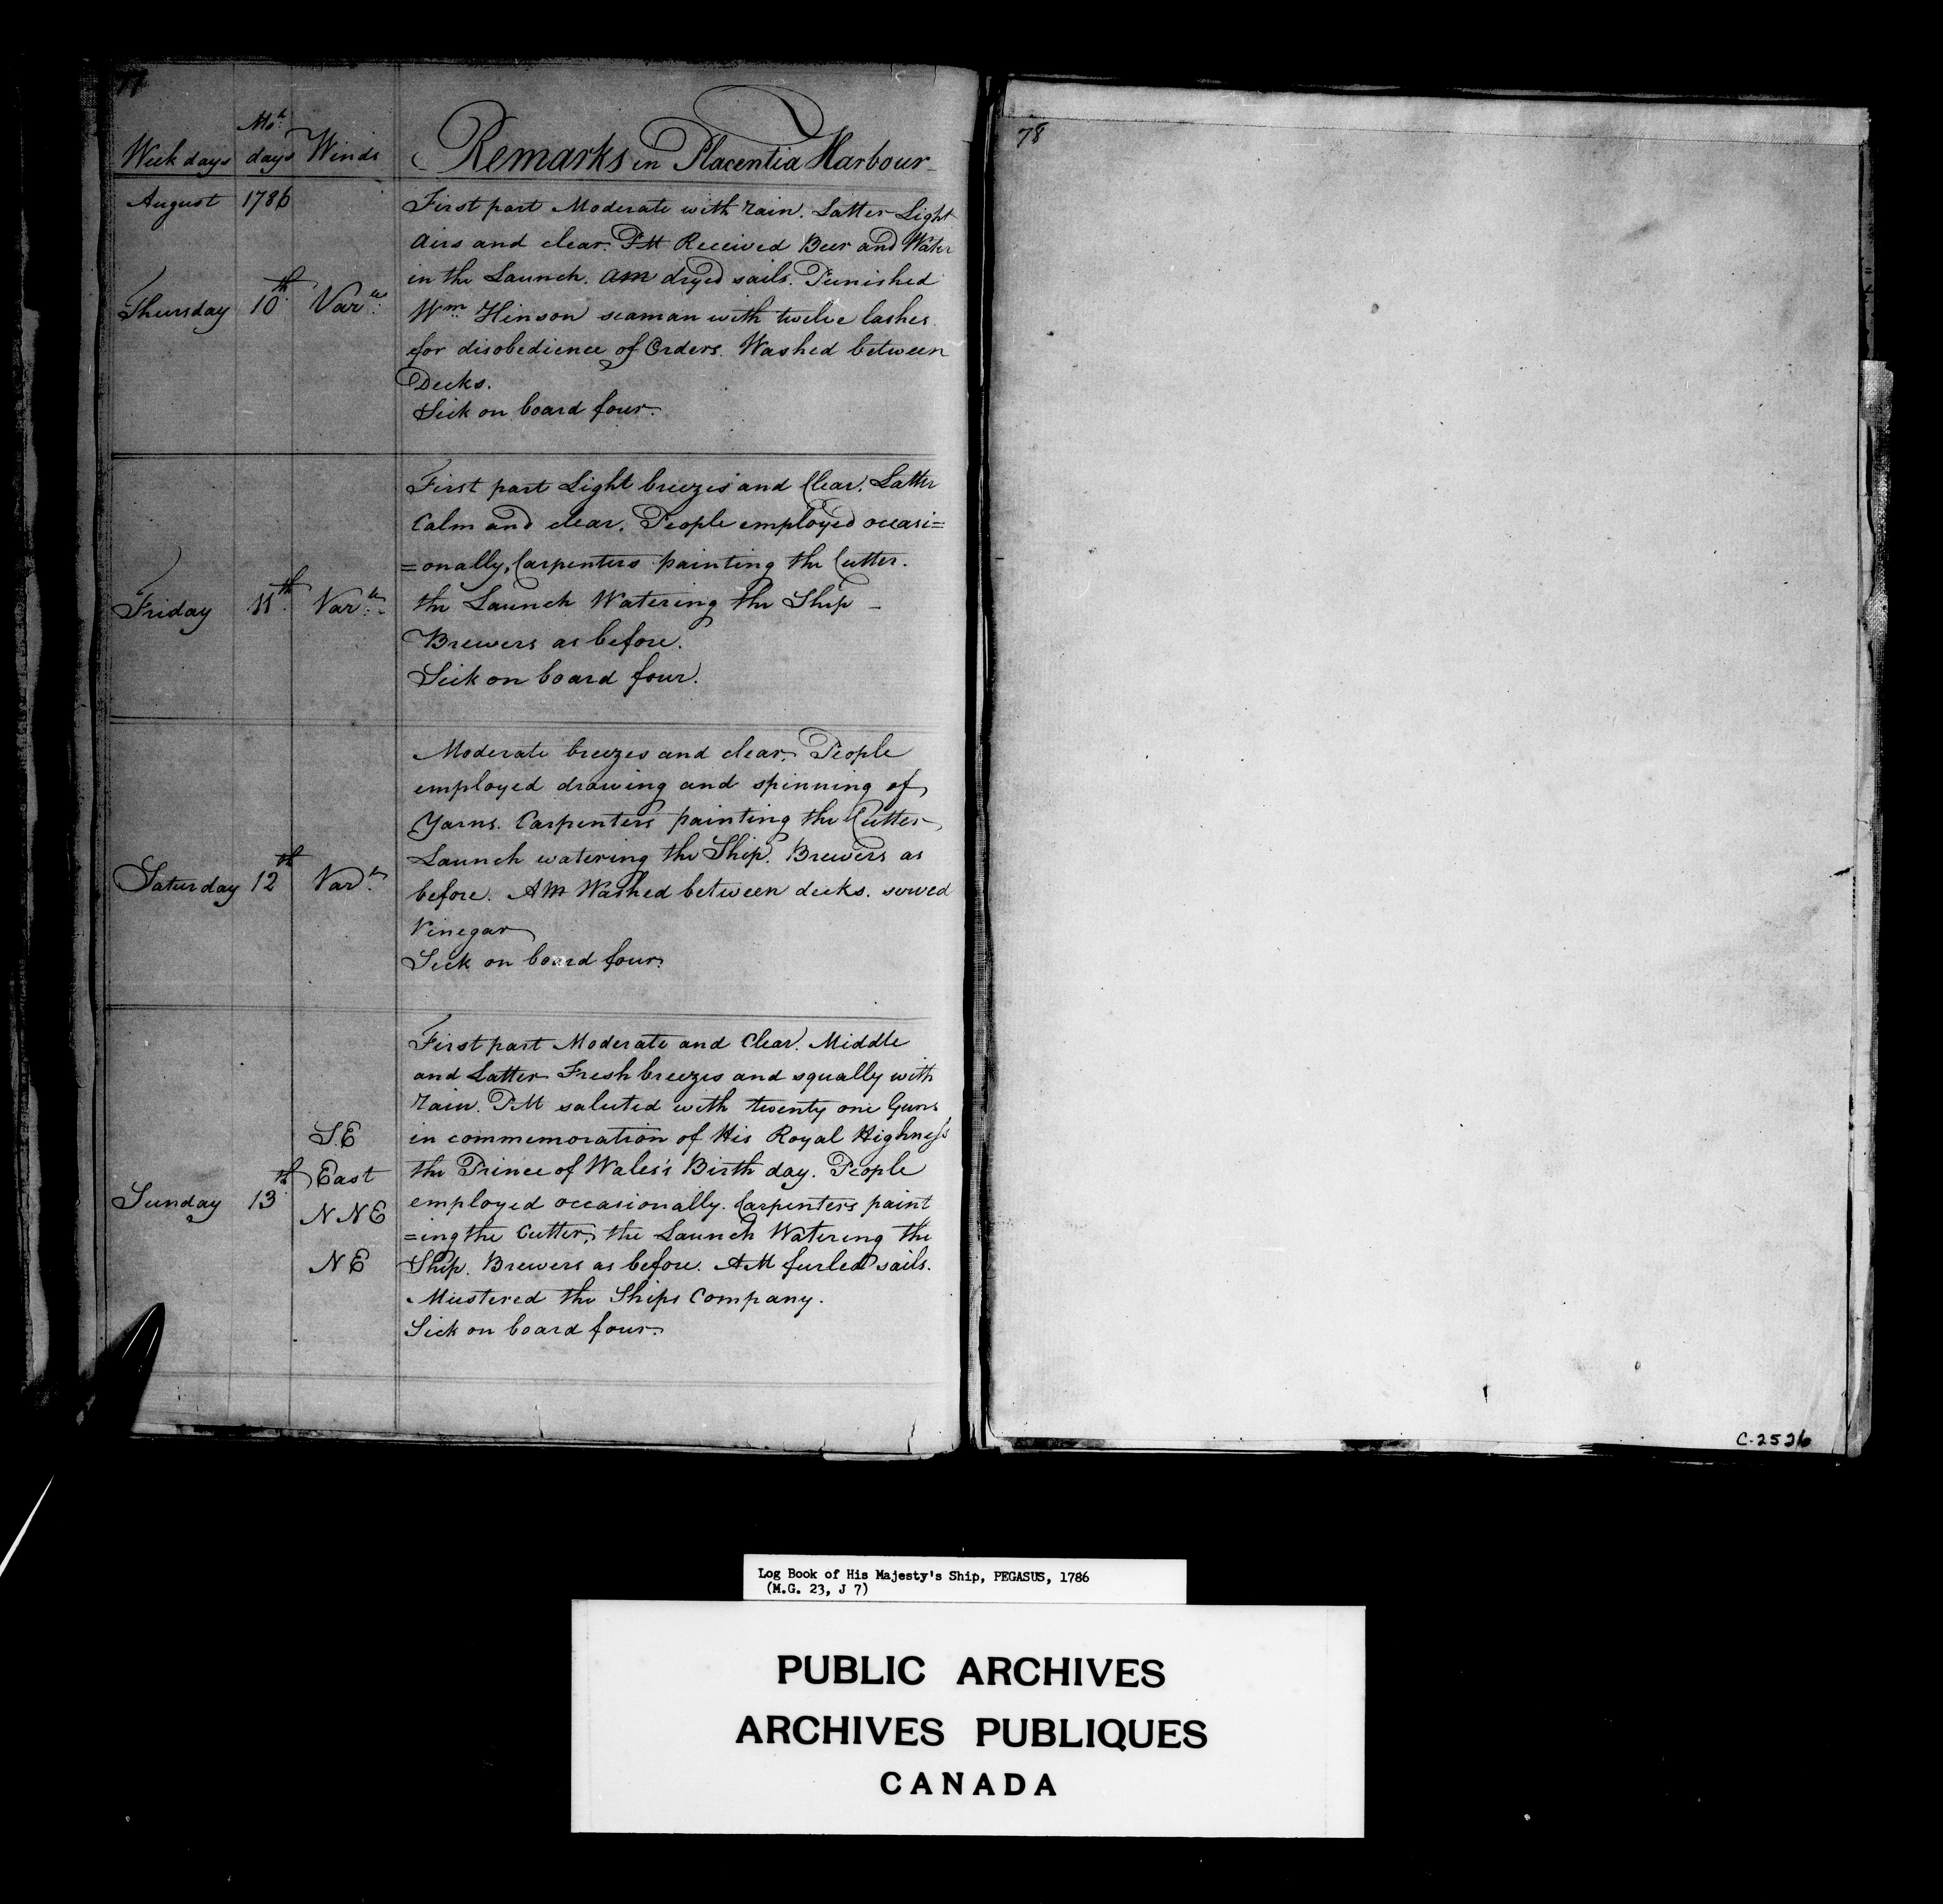 77
Mo.h
Week days days Winds Remarks in Placentia Harbour
August 1786
First part Moderate with rain. Latter Light
Airs and clear. PM Received Beer and Water
in the Launch. AM dryed sails. Punished
Thursday 10th Var.le
Wm. Hinson seaman with twelve lashes
for disobedience of Orders. Washed between
Decks.
Sick on board four.
First part Light breezes and Clear. Latter
Calm and clear. People employed occasi=
=onally, Carpenters painting the Cutter.
Friday 11th Var.le
the Launch Watering the Ship –
Brewers as before.
Sick on board four.
Moderate breezes and clear. People
employed drawing and spinning of
Yarns. Carpenters painting the Cutter
Launch watering the Ship. Brewers as
Saturday 12th Var.le
before. AM Washed between decks. served
Vinegar
Sick on board four.
First part Moderate and Clear. Middle
and Latter Fresh breezes and squally with
rain. PM saluted with twenty one Guns
S.E
in commemoration of His Royal Highness
East
the Prince of Wales's Birth day. People
Sunday 13th
NNE
employed occasionally. Carpenters paint
=ing the Cutter, the Launch Watering the
NE
Ship. Brewers as before. AM furled sails.
Mustered the Ships Company.
Sick on board four.
78
C-2526
Log Book of His Majesty's Ship, PEGASUS, 1786
(M.G. 23, J 7)
PUBLIC ARCHIVES
ARCHIVES PUBLIQUES
CANADA